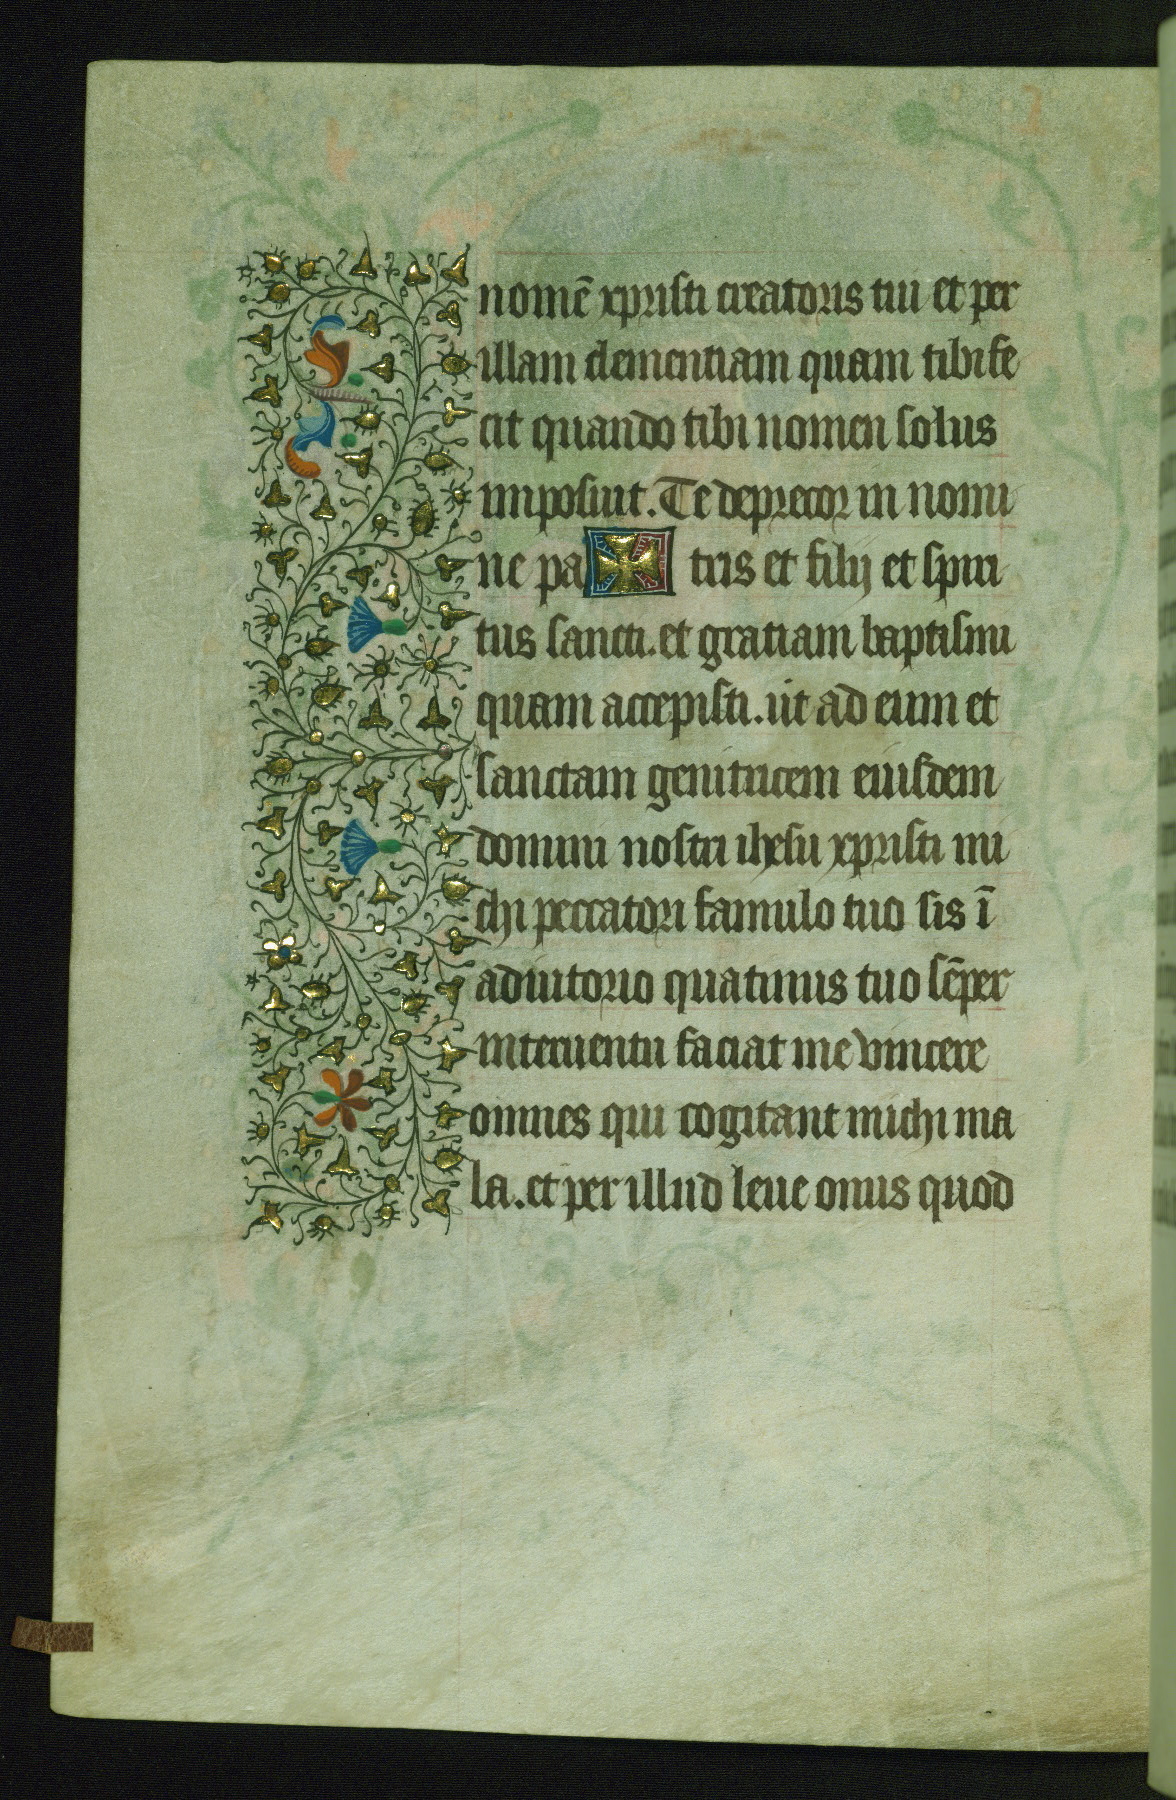 nomē xpristi creatoris tui et per
illam clementiam quam tibi fe
cit quando tibi nomen solus
imposuit. Te deprecor in nomi
ne pa tris et filij et spiri
tus sancti. et gratiam baptismi
quam accepisti. ut ad eum et
sanctam genitricem eiusdem
domini nostri ihesu xpristi mi
chi peccatori famulo tuo sis ī
adiutorio quatinus tuo sēper
interuentu faciat me vincere
omnes qui cogitant michi ma
la. et per illud leue onus quod